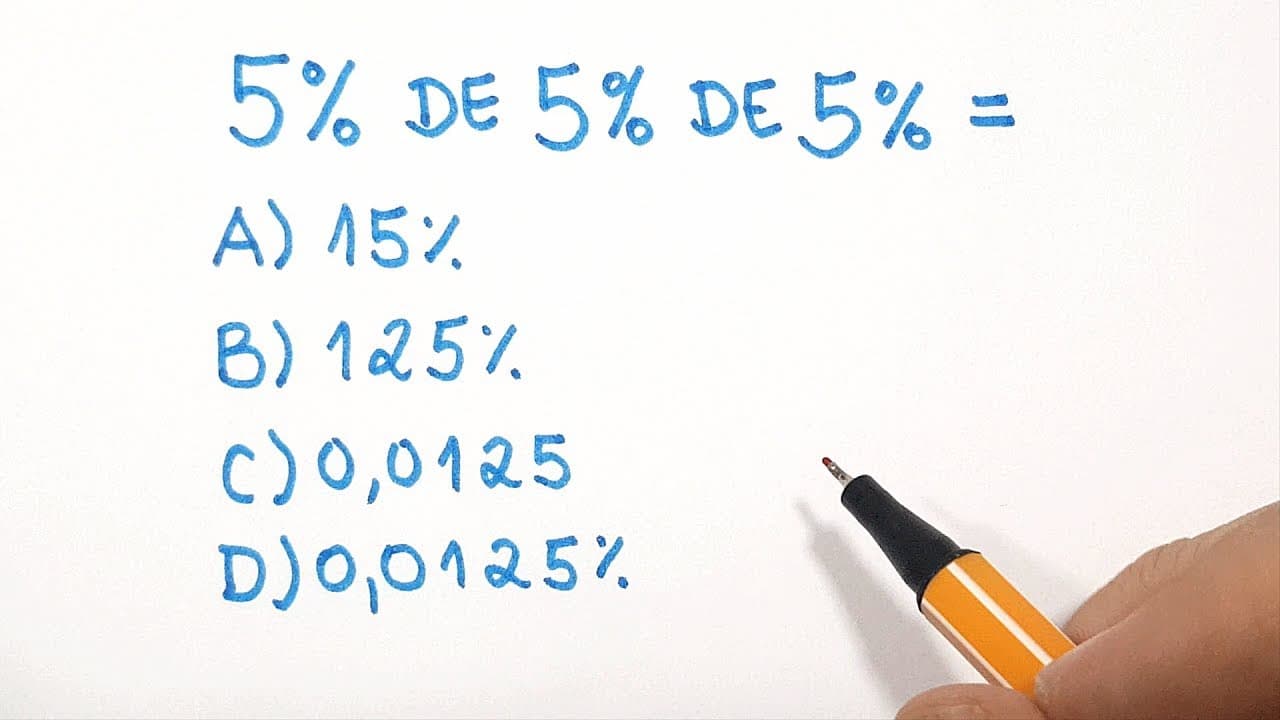 5% DE 5% DE 5% =
A) 15%
B) 125%
C) 0,0125
D) 0,0125%